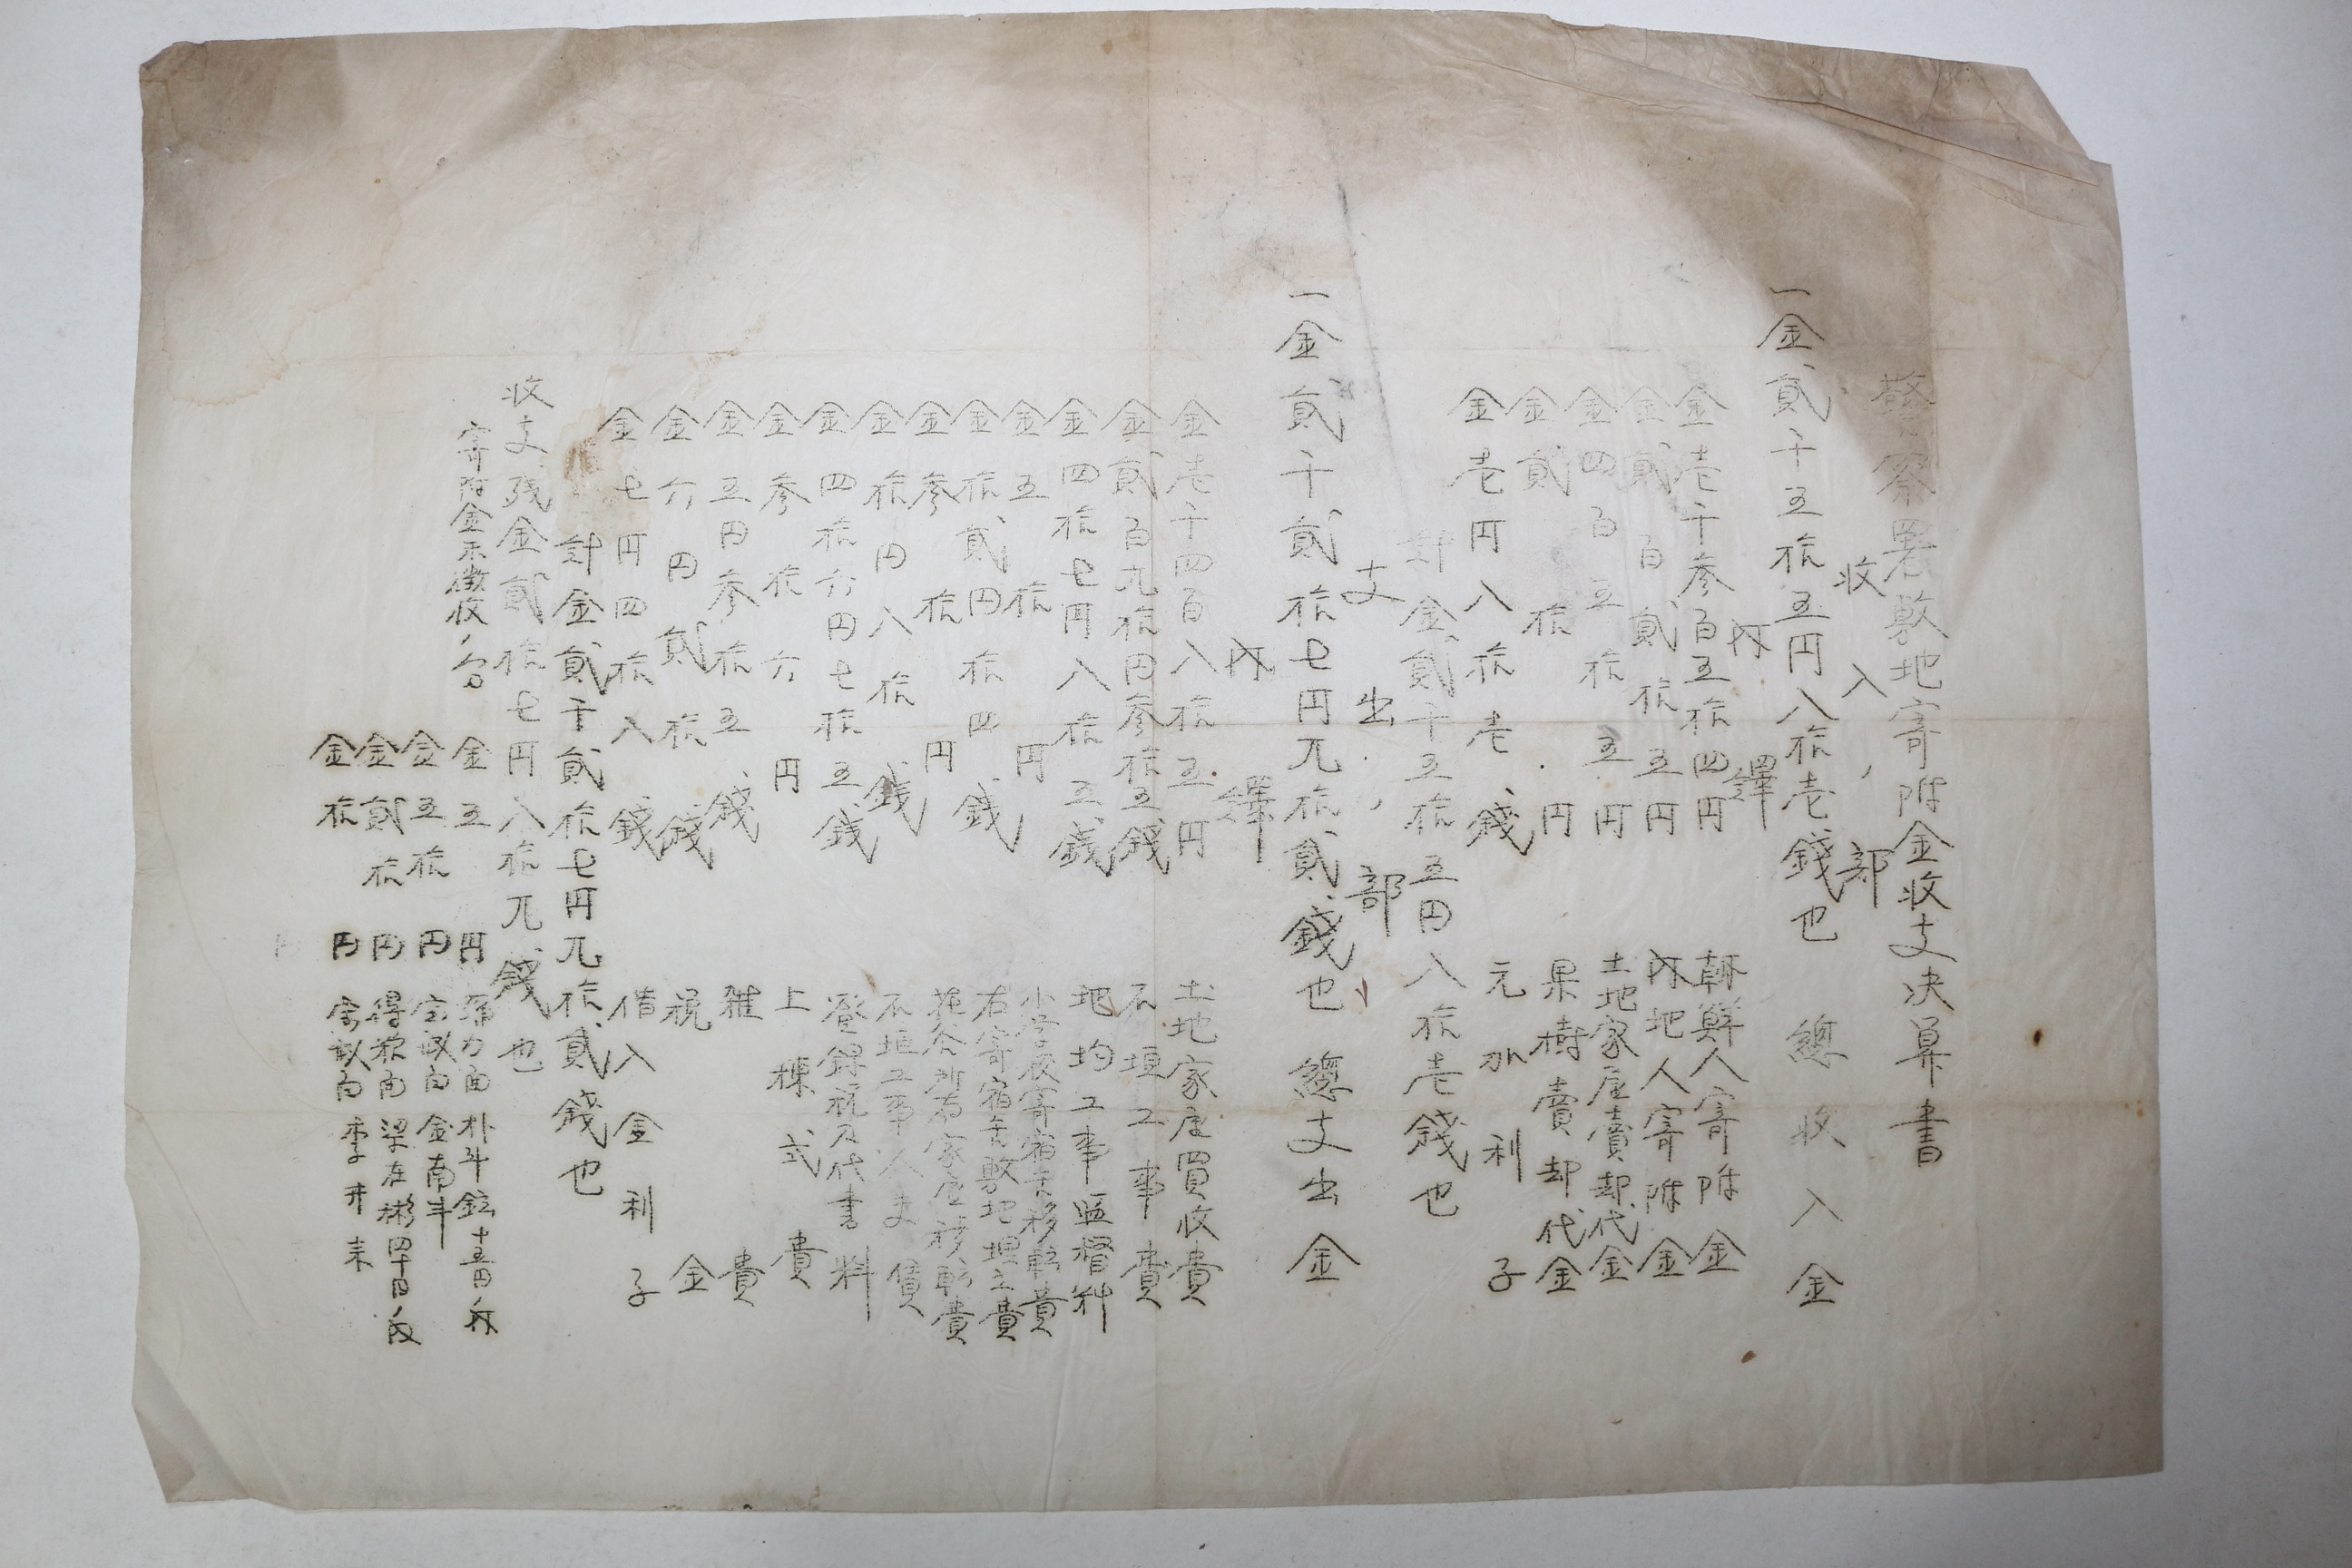 警察署敷地寄附金收支決算書
收入ノ部
一金貳千五拾五円八拾壱錢也 總收入金
内譯
金壱千参百五拾四円 朝鮮人寄附金
金貳百貳拾五円 内地人寄附金
金四百五拾五円 土地家屋賣却代金
金貳拾円 果樹賣却代金
金壱円八拾壱錢 元加利子
計金貳千五拾五円八拾壱錢也
支出ノ部
一金貳千貳拾七円九拾貳錢也 總支出金
内譯
金壱千四百八拾五円 土地家屋買收費
金貳百九拾円参拾五錢 石垣工事費
金四拾七円八拾五錢 地均工事監督料
金五拾円 小学校寄宿舎移転費
金拾貳円拾四錢 右寄宿舎敷地埋立費
金参拾円 所有家屋移転費
金拾円八拾錢 石垣工事人夫賃
金四拾六円七拾五錢 登錄税及代書料
金参拾六円 上棟式費
金五円参拾五錢 雑費
金六円貳拾錢 税金
金七円四拾八錢 借入金利子
計金貳千貳拾七円九拾貳錢也
收支残金貳拾七円八拾九錢也
寄附金未徴收ノ分
金五円 面 朴斗鉉 十五円ノ内
金五拾円 面 金南斗
金貳拾円 面 梁在彬 四十円ノ内
金拾円 面 李井来
円